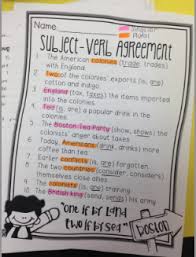 Name
singular
Plural
SUBJECT-VERB AGREEMENT
1. The American colonies (trade, trades)
with England.
2. Two of the colonies' exports (is, are)
cotton and indigo.
3. England (tax, taxes) the items imported
into the colonies.
4. Tea (is, are) a popular drink in the
colonies.
5. The Boston Tea Party (show, shows) the
colonists' anger about taxes.
6. Today, Americans (drink, drinks) more
coffee than tea.
7. Earlier conflicts (is, are) forgotten.
8. The two countries (consider, considers)
themselves close allies.
9. The colonists (is, are) training.
10. The British king (send, sends) his
army.
"one if by land
two if by sea"
BOSTON